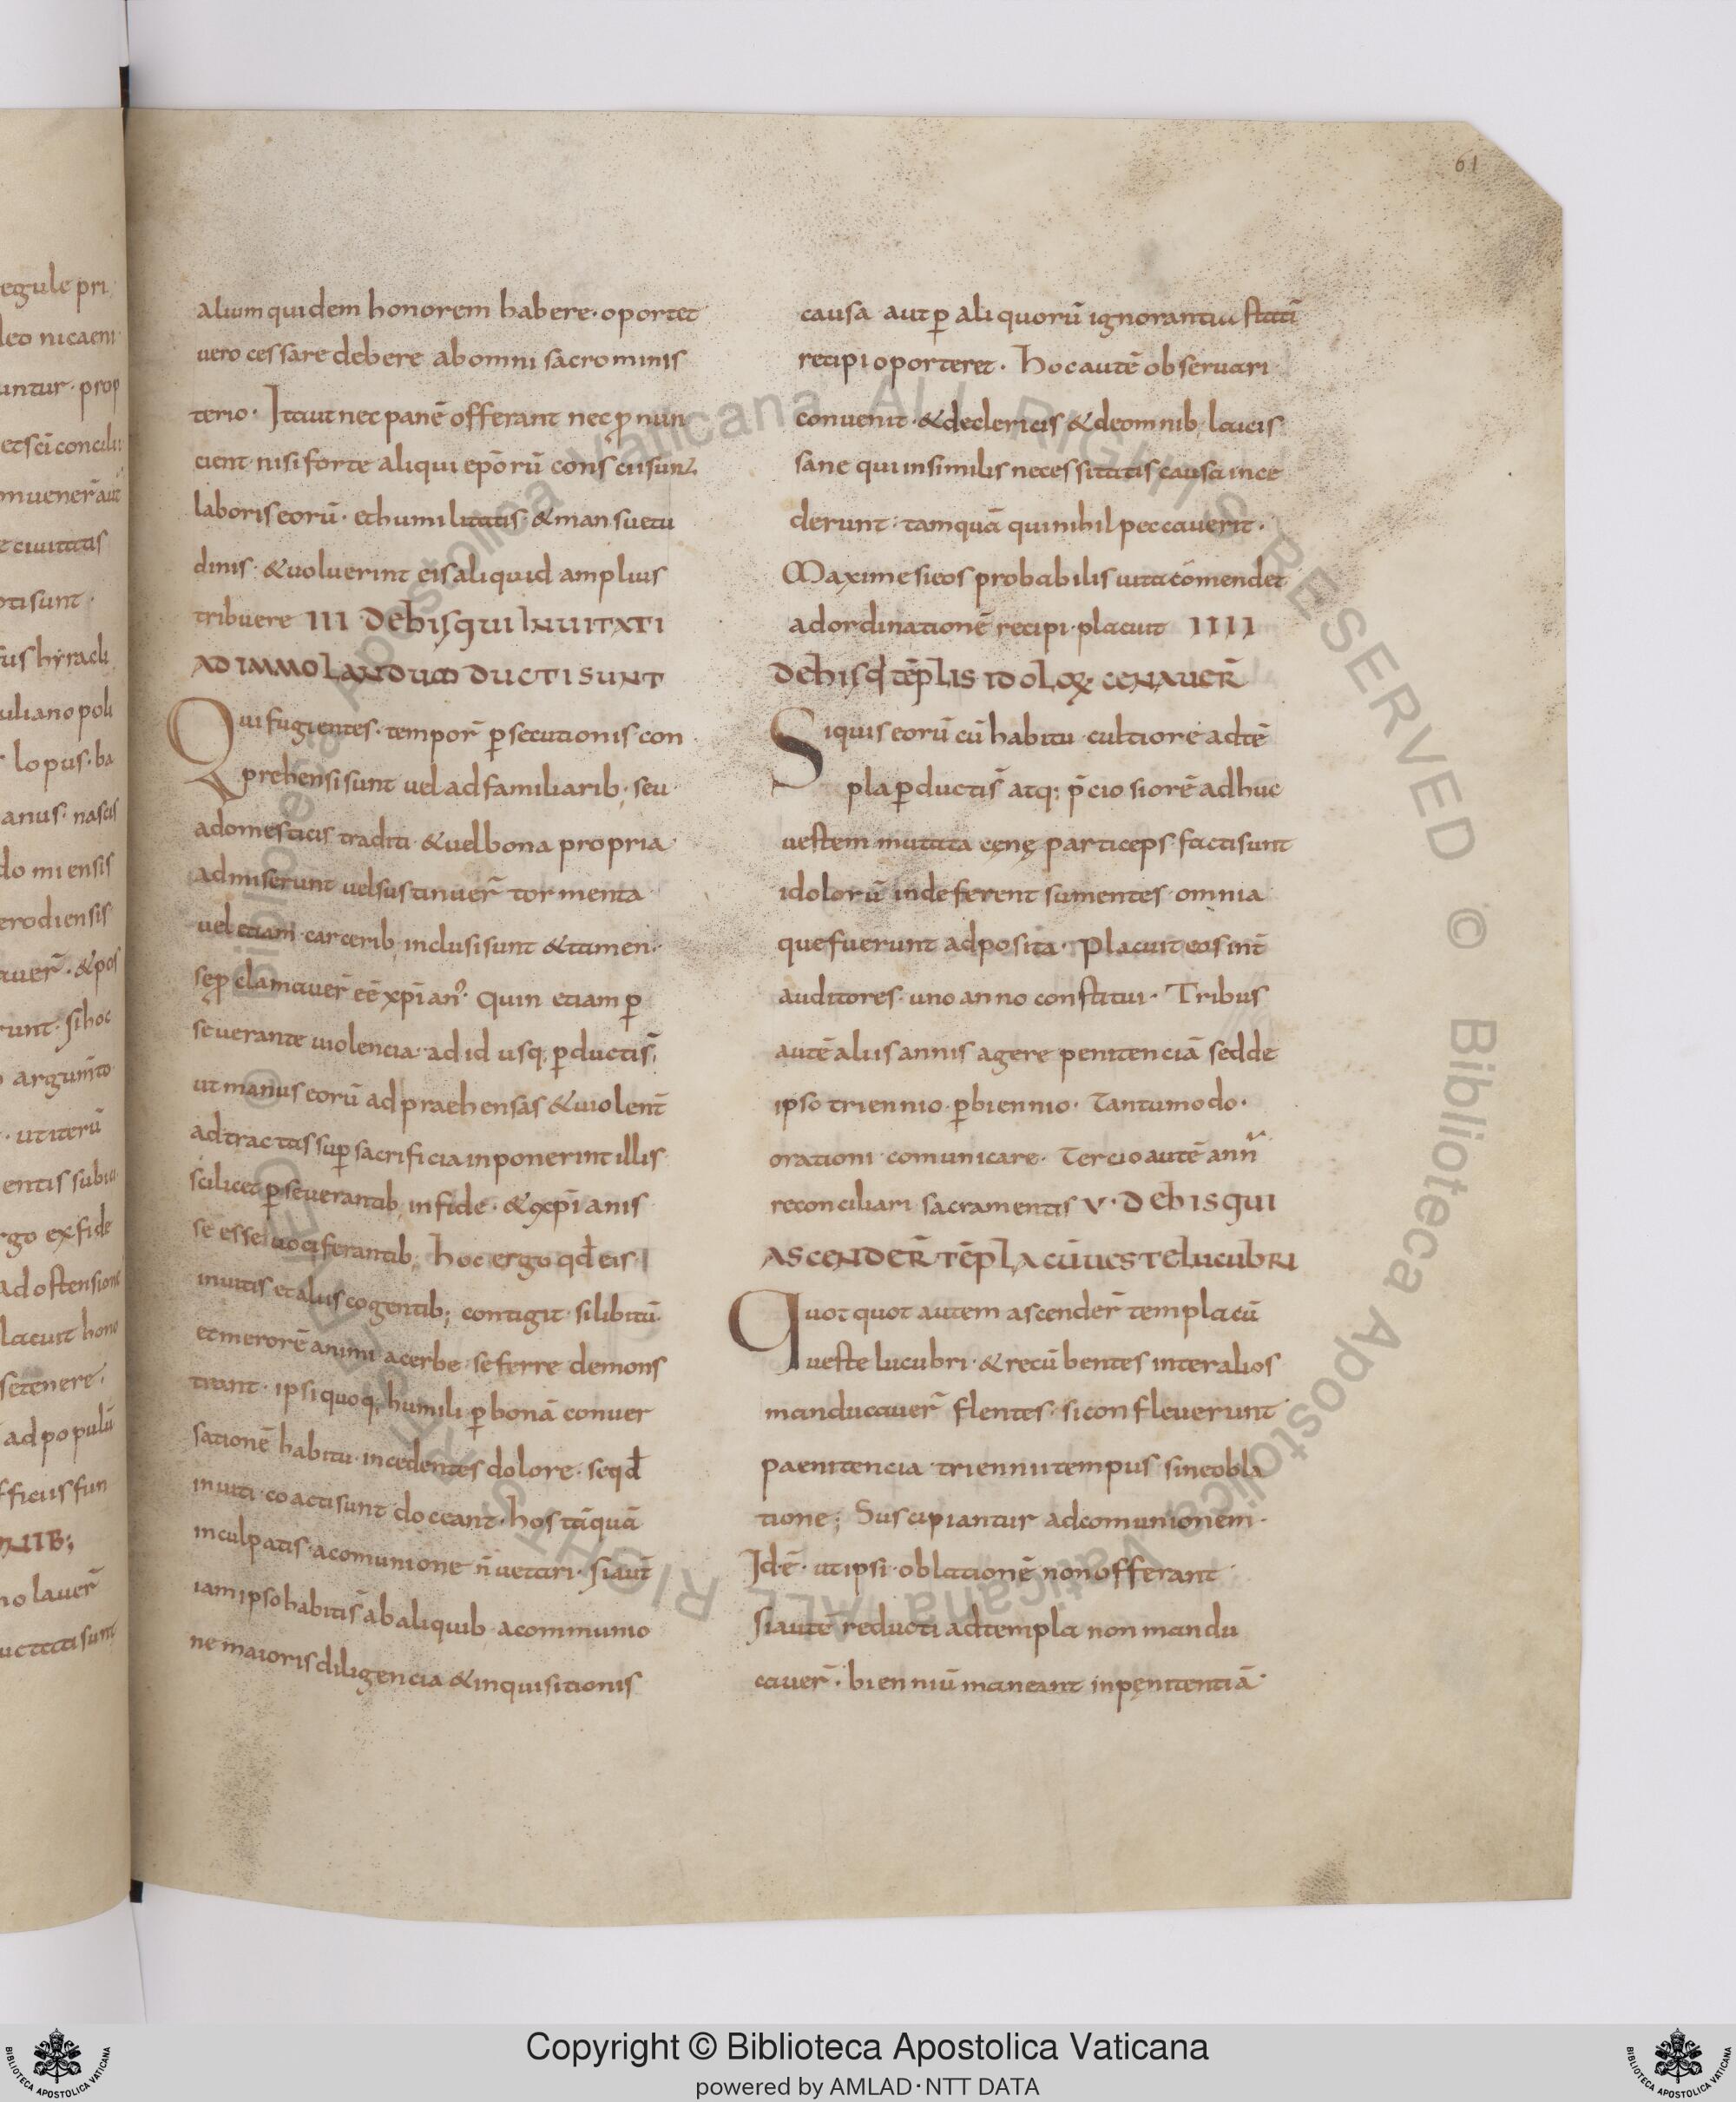 61
egule pri
leo nicaeni
untur · prop
et sci concilii
muener̄ aut
t ciuitatis
oti sunt ·
fus hyracli
uliano poli
lopus · ba
anus · nascis
do miensis
erodiensis
auer̄ · & pos
runt · si hoc
argum̄to
· ut iterū
entis subia
rgo ex fide
ad ostensione
lacuit hono
se tenere ·
ad populū
fficiis fun
no lauer̄
alium quidem honorem habere · oportet
uero cessare debere ab omni sacro minis
terio · Ita ut nec panē offerant nec ꝓ nun
cient · nisi forte aliqui ep̄orū conscii sunt
laboris eorū · et humilitatis · & mansuetu
dinis · & uoluerint eis aliquid amplius
tribuere III De his qui inuitati
AD IMMOLANDUM DUCTI SUNT
Qui fugientes · tempor̄ ꝑsecutionis con
prehensi sunt uel ad familiarib; seu
a domesticis traditi · & uel bona propria
admiserunt uel sustinuer̄ tormenta
uel etiam carcerib; inclusi sunt & tamen ·
seꝑ clamauer̄ eē xp̄ian᾽ · Quin etiam ꝑ
seuerante uiolencia · ad id usq; ꝑducti s̄;
ut manus eorū adpraehensas & uiolent̄
adtractas suꝑ sacrificia inponerint illis
scilicet ꝑseuerantib; in fide · & xp̄ianis
se esse uociferantib; hoc ergo qd̄ eis
inuitis et aliis cogentib; contigit · si libitū
et merorē animi acerbe · se ferre demons
trant · ipsi quoq; humili ꝑ bonā conuer
sationē habitu · incedentes dolore · se qd̄
inuiti · coacti sunt doceant · hos tāquā
inculpatis · a comunione n̄ uetari · Si aut̄
iam ipso habiti s̄ ab aliquib; a commvnio
ne maioris diligencia & inquisitionis
causa aut ꝑ aliquorū ignorantia statī
recipi oporteret · Hoc autē obseruari
conuenit · & de clericis & de omnib; laicis
sane qui in similis necessitatis causa ince
derunt · tamquā qui nihil peccauerit ·
Maxime si eos probabilis uita cōmendet
ad ordinationē recipi · placuit IIII
De his q̄ tēplis idoloꝝ cenauer̄
Si quis eorū cū habitu · cultiore ad tē
pla ꝑducti s̄ atq; p̄ciosiorē adhuc
uestem mutata cęnę particeps · facti sunt
idolorū indeferent sumentes · omnia
que fuerunt adposita · Placuit eos int̄
auditores · uno anno constitui · Tribus
autē aliis annis agere penitenciā sed de
ipso triennio · ꝑ biennio · Tantumodo ·
orationi · comunicare · Tercio autē ann̄
reconciliari sacramentis V · De his qui
ASCENDER̄ TĒPLA CŪ UESTE LUCUBRI
Quot quot autem ascender̄ templa cū
ueste lucubri · & recūbentes inter alios
manducauer̄ flentes · si confleuerunt
paenitencia · triennii tempus sine obla
tione; Suscipiantur ad comunionem ·
Id · ē · ut ipsi · oblationē non offerant
Si autē reducti ad templa non mandu
cauer̄ · bienniū maneant in pęnitentiā ·
Copyright © Biblioteca Apostolica Vaticana
powered by AMLAD·NTT DATA
BIBLIOTECA APOSTOLICA VATICANA
BIBLIOTECA APOSTOLICA VATICANA
© Biblioteca Apostolica Vaticana ALL RIGHTS RESERVED © Biblioteca Apostolica Vaticana ALL RIGHTS RESERVED